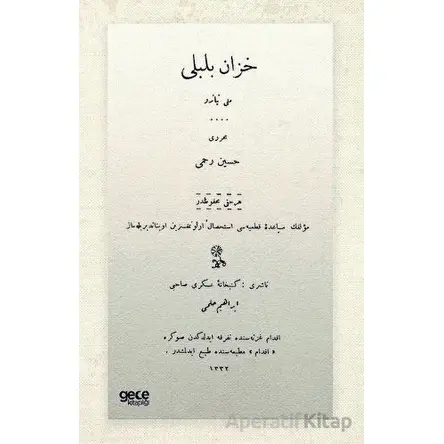 خزان بلبلی
ملی تیاترو
محرری
حسین رحمی
هر حقی محفوظدر
مؤلفك مساعدهٔ قطعیه‌سی استحصال اولونمقسزین اویناندیریله‌ماز
ناشری : كتبخانهٔ عسكری صاحبی
ابراهیم حلمی
اقدام غزته‌سنده تفرقه ایدلدكدن صوكره
« اقدام » مطبعه‌سنده طبع ایدلشدر .
١٣٣٢
gece
kitaplığı
AperatifKitap